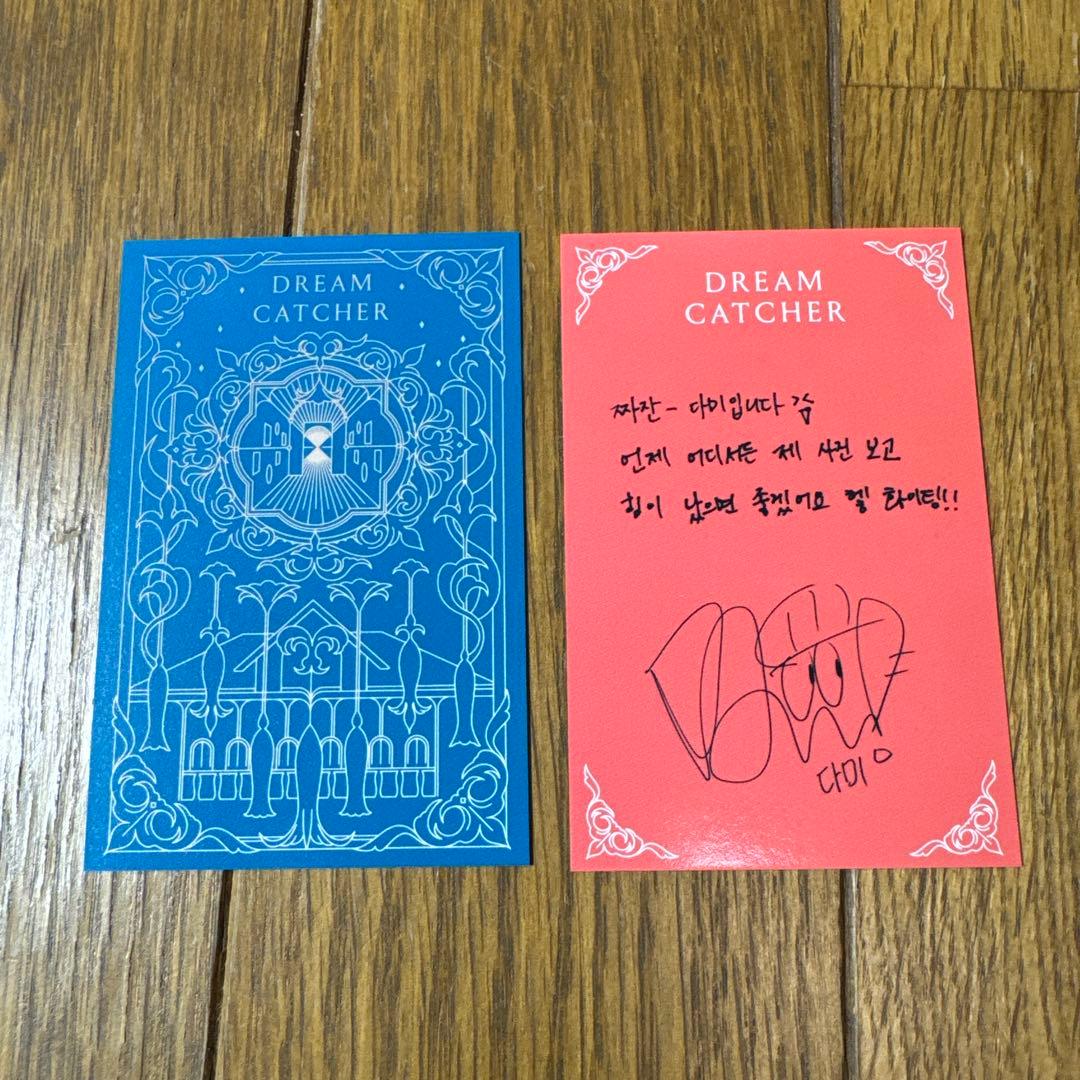 DREAM
CATCHER
DREAM
CATCHER
짜잔- 다미입니다
언제 어디서든 제 사진 보고
힘이 났으면 좋겠어요 헬 화이팅!!
다미